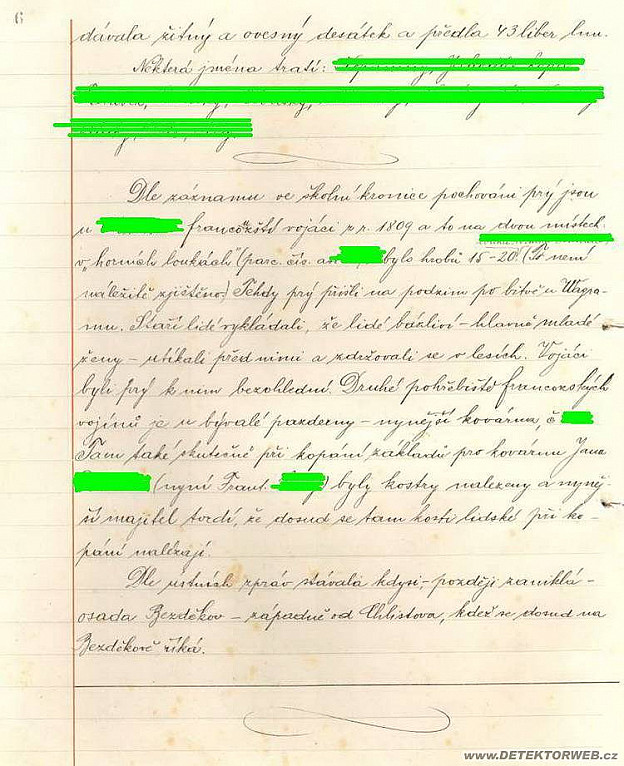 6
dávala žitný a ovesný desátek a předla 43 liber lnu.
Některá jména tratí:
Dle záznamu ve školní kronice pochováni prý jsou
u francouzští vojáci z r. 1809 a to na dvou místech:
v „horních loukách" (parc. čís. byly hrobů 15-20. (To není
náležitě zjištěno.) Tehdy prý přišli na podzim po bitvě u Wagra-
mu. Staří lidé vykládali, že lidé bázliví - hlavně mladé
ženy - utíkali před nimi a zdržovali se v lesích. Vojáci
byli prý k nim bezohlední. Druhé pohřebiště francouzských
vojínů je u bývalé pazderny - nynější kovárna, č
Tam také skutečně při kopání základů pro kovárnu Jana
(nyní Frant. ) byly kostry nalezeny a nyněj-
ší majitel tvrdí, že dosud se tam kosti lidské při ko-
pání nalézají.
Dle ústních zpráv stávala kdysi - později zaniklá -
osada Bezděkov - západně od Chlistova, kdež se dosud na
Bezděkově říká.
www.DETEKTORWEB.cz